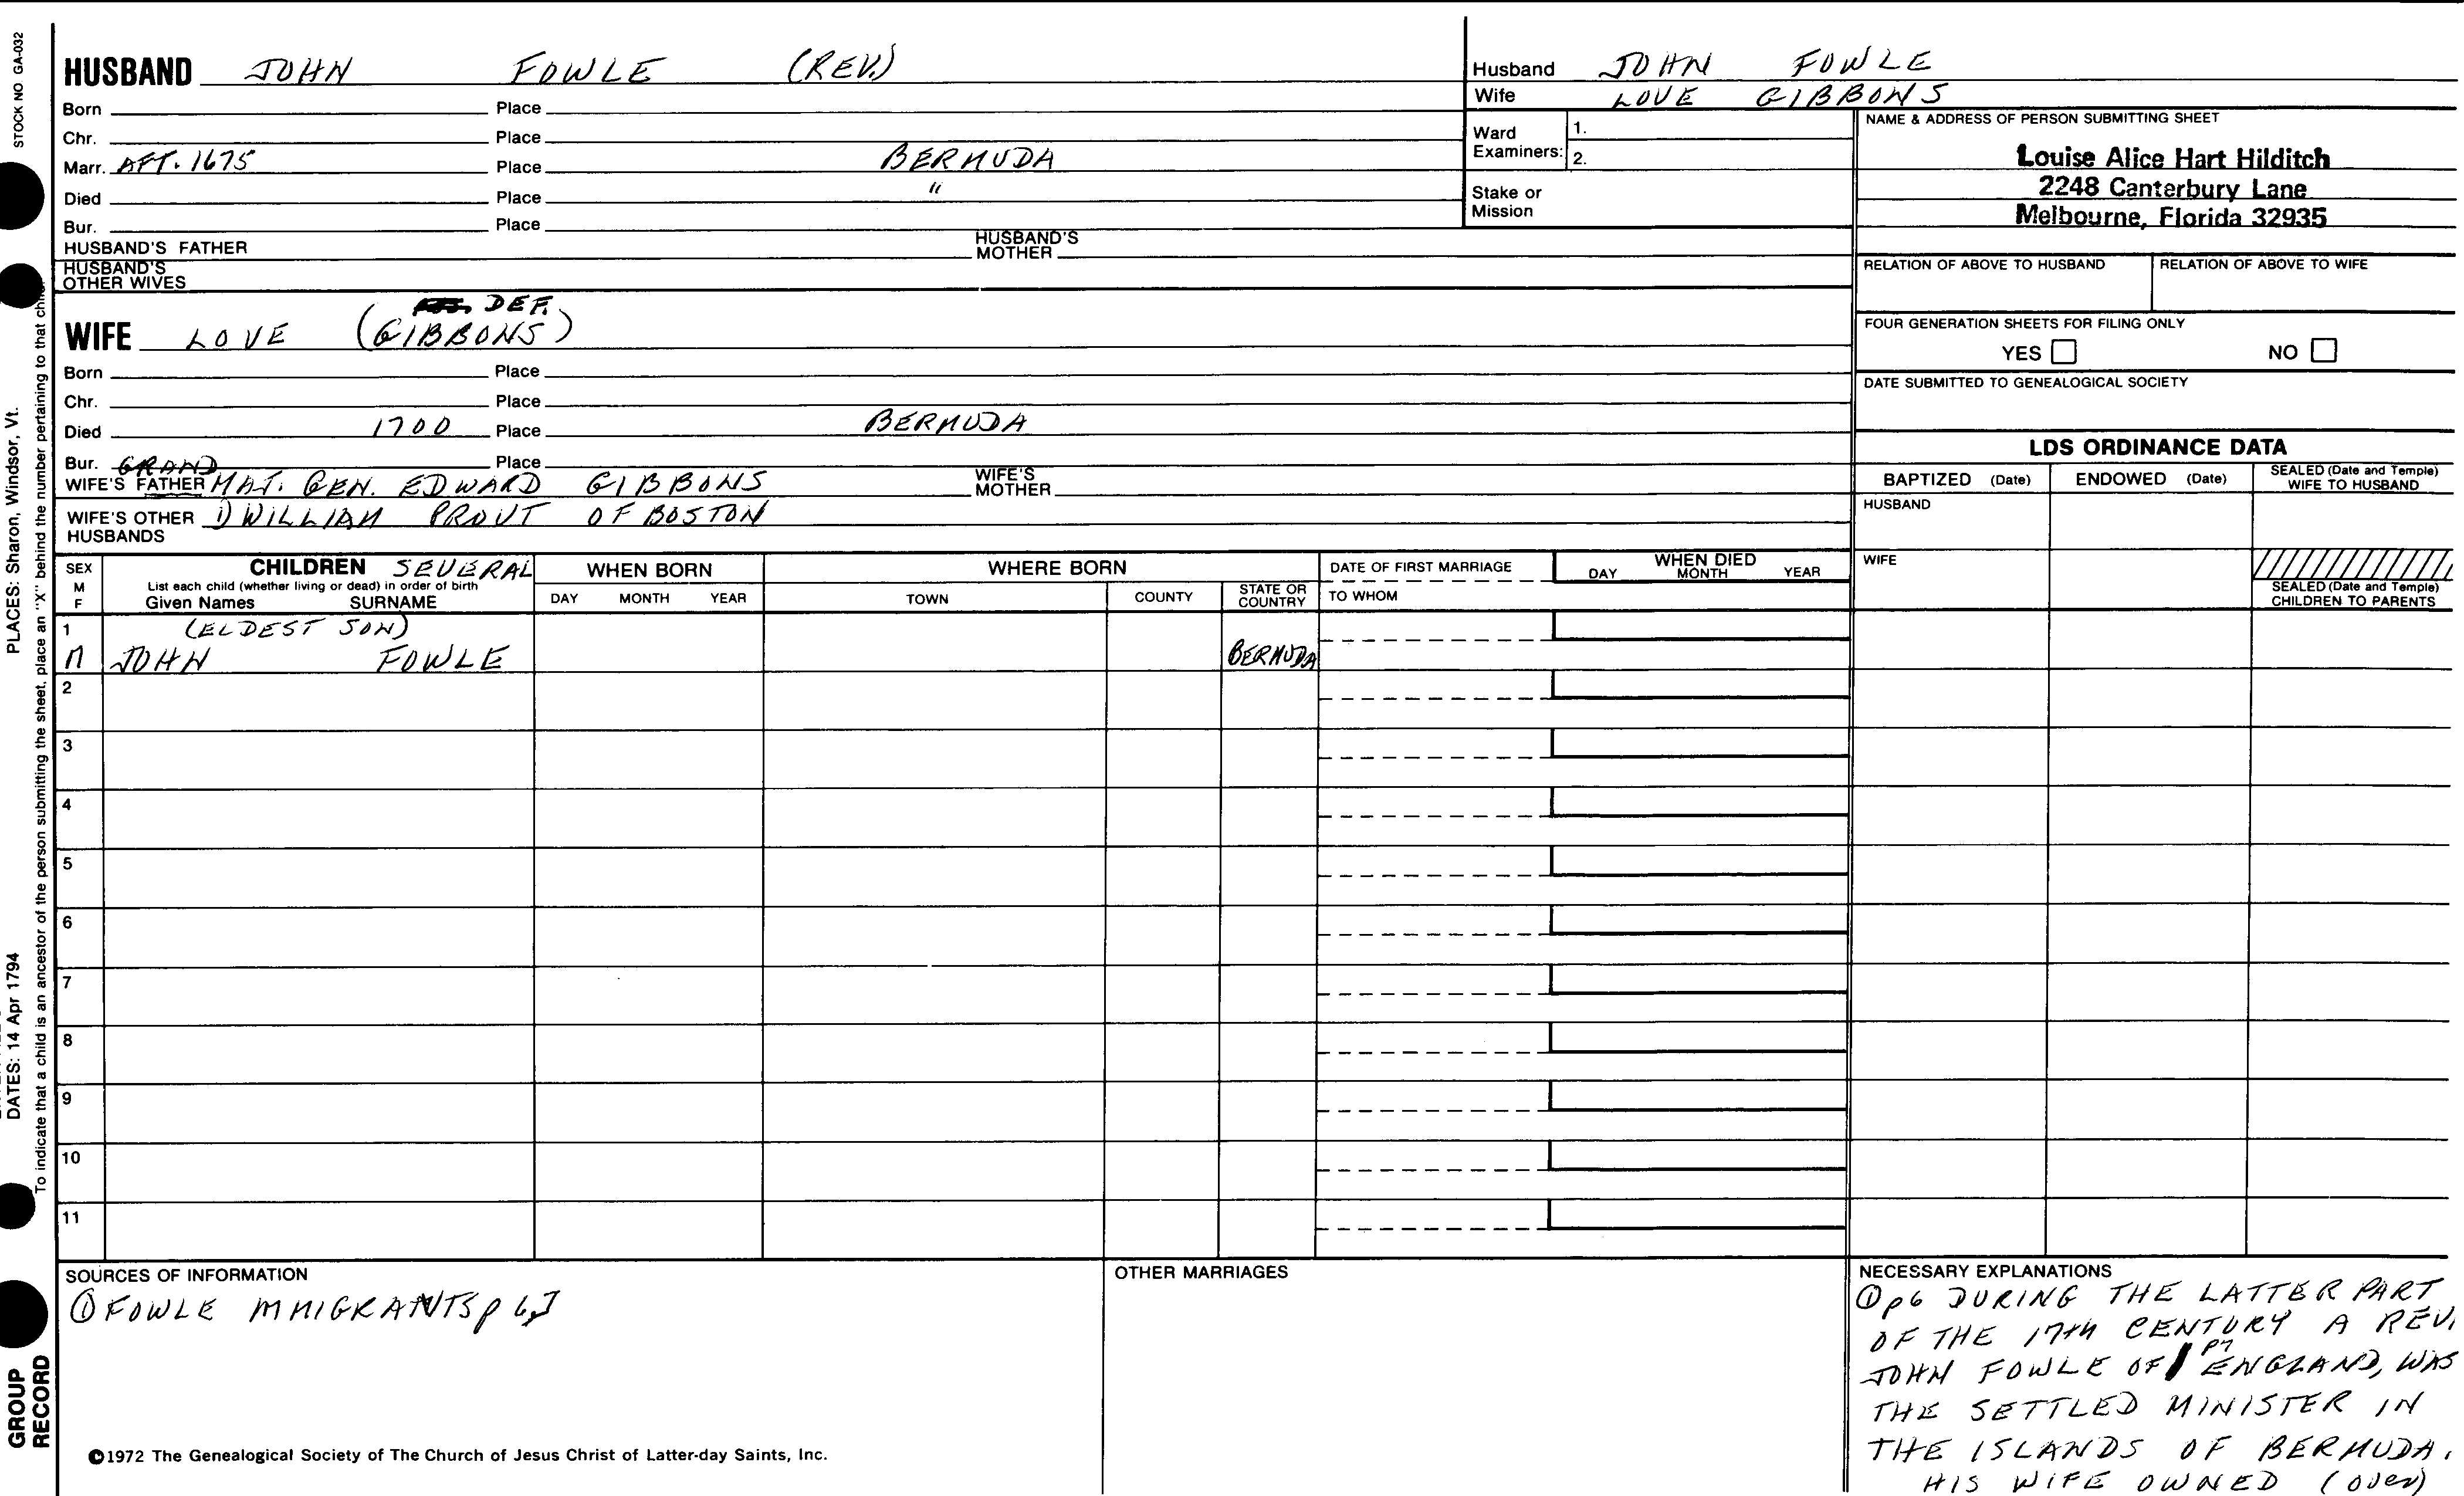 STOCK NO GA-032
HUSBAND JOHN FOWLE (REV.)
Born Place
Chr. Place
Marr. AFT. 1675 Place BERMUDA
Died Place "
Bur. Place
HUSBAND'S FATHER HUSBAND'S MOTHER
HUSBAND'S OTHER WIVES
Husband JOHN FOWLE
Wife LOVE GIBBONS
Ward Examiners: 1.
2.
Stake or Mission
NAME & ADDRESS OF PERSON SUBMITTING SHEET
Louise Alice Hart Hilditch
2248 Canterbury Lane
Melbourne, Florida 32935
RELATION OF ABOVE TO HUSBAND RELATION OF ABOVE TO WIFE
FOUR GENERATION SHEETS FOR FILING ONLY
YES NO
DATE SUBMITTED TO GENEALOGICAL SOCIETY
DEF.
WIFE LOVE (GIBBONS)
Born Place
Chr. Place
Died 1700 Place BERMUDA
Bur. Place
GRAND
WIFE'S FATHER MAJ. GEN. EDWARD GIBBONS WIFE'S MOTHER
WIFE'S OTHER HUSBANDS 1) WILLIAM PROUT OF BOSTON
LDS ORDINANCE DATA
BAPTIZED (Date) ENDOWED (Date) SEALED (Date and Temple) WIFE TO HUSBAND
HUSBAND
WIFE
SEALED (Date and Temple) CHILDREN TO PARENTS
SEX M F
CHILDREN SEVERAL
List each child (whether living or dead) in order of birth
Given Names SURNAME
WHEN BORN
DAY MONTH YEAR
WHERE BORN
TOWN COUNTY STATE OR COUNTRY
DATE OF FIRST MARRIAGE
TO WHOM
WHEN DIED
DAY MONTH YEAR
1 (ELDEST SON)
M JOHN FOWLE BERMUDA
2
3
4
5
6
7
8
9
10
11
SOURCES OF INFORMATION
① FOWLE MMIGRANTS p 6,7
OTHER MARRIAGES
NECESSARY EXPLANATIONS
① p6 DURING THE LATTER PART
OF THE 17TH CENTURY A REV.
JOHN FOWLE OF p7 ENGLAND, WAS
THE SETTLED MINISTER IN
THE ISLANDS OF BERMUDA.
HIS WIFE OWNED (over)
©1972 The Genealogical Society of The Church of Jesus Christ of Latter-day Saints, Inc.
PLACES: Sharon, Windsor, Vt.
DATES: 14 Apr 1794
To indicate that a child is an ancestor of the person submitting the sheet, place an "X" behind the number pertaining to that child.
GROUP
RECORD